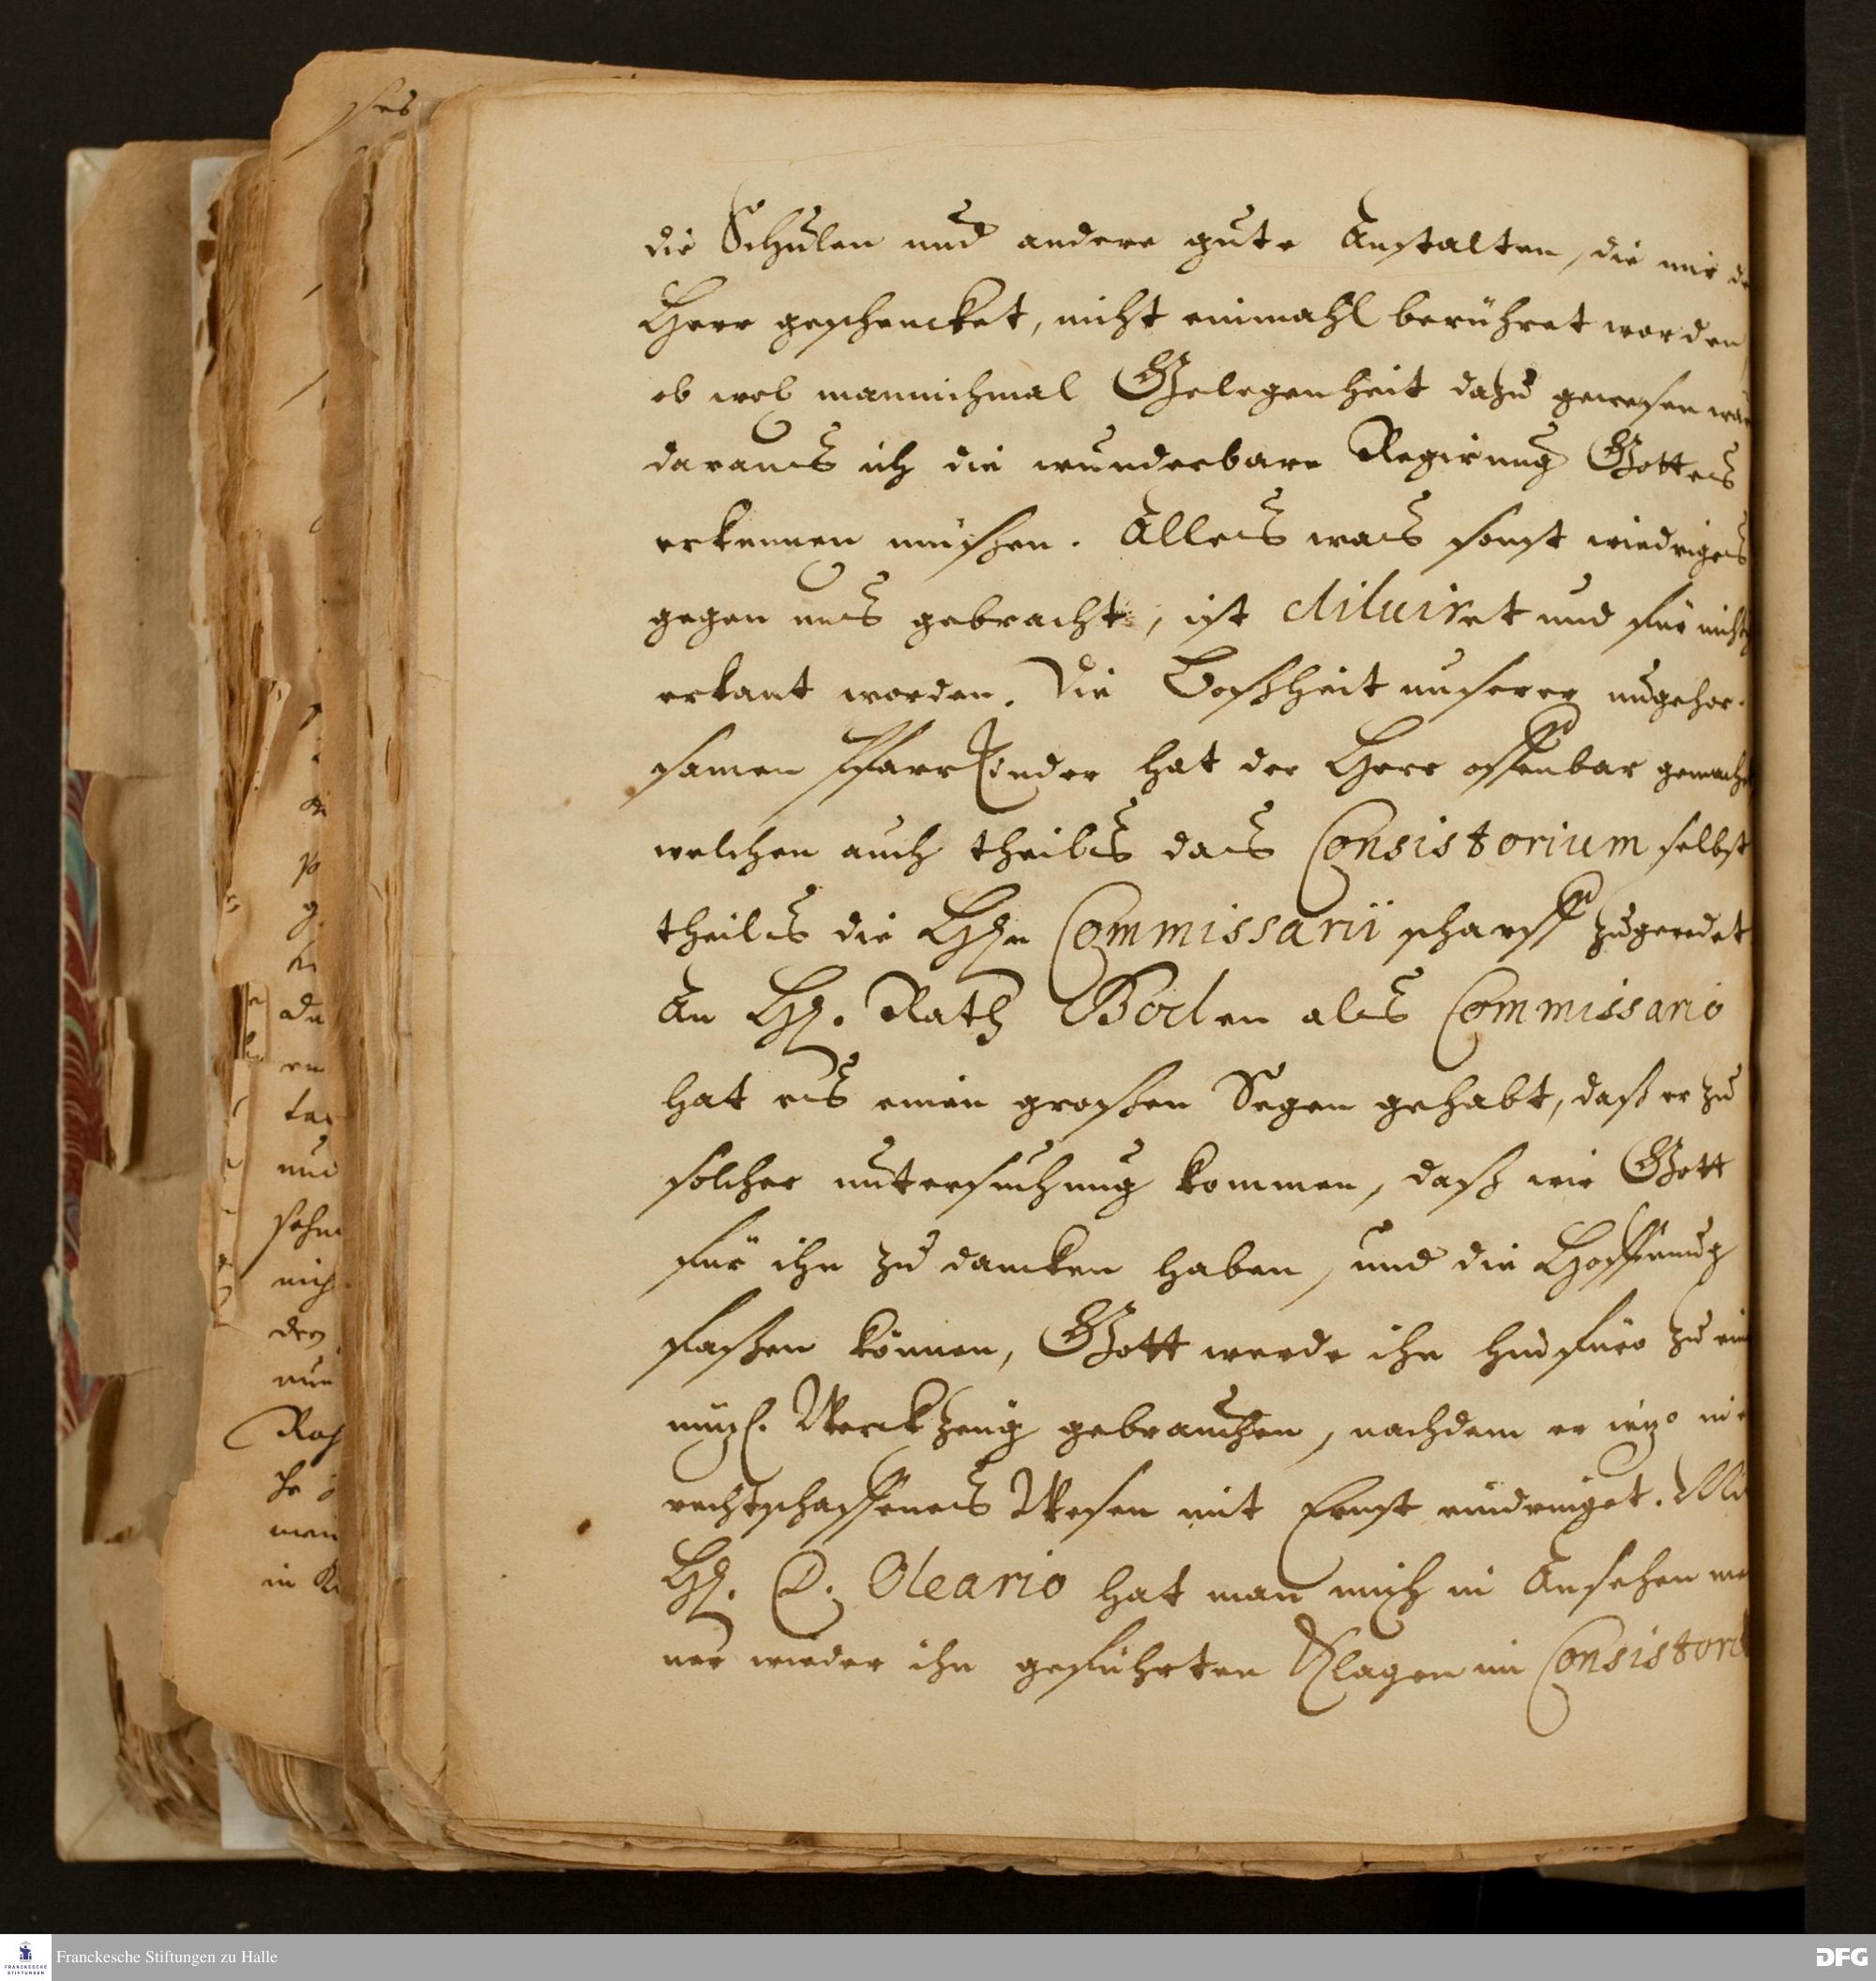 die Schulen und andere gute Anstalten, die mir
Herr geschencket, nicht einmahl berühret worden
ob wol mannichmal Gelegenheit dazu gewesen
daraus ich die wunderbare Regirung Gottes
erkennen müßen. Alles was sonst wiedriges
gegen uns gebracht, ist diluiret und für nicht
erkant worden. Die Boßheit unserer ungehor-
samen PfarrKinder hat der Herr offenbar gemacht
welchen auch theils das Consistorium selbst
theils die HEn Commissarii scharff zugeredet
An HE. Rath Boden als Commissario
hat es einen großen Segen gehabt, daß er zu
solcher untersuchung kommen, daß wir Gott
für ihn zu dancken haben, und die Hoffnung
faßen können, Gott werde ihn hinfüro zu
nüzl. Werckzeug gebrauchen, nachdem er iezo
rechtschaffenes Wesen mit Ernst eindringet.
HE. D. Oleario hat man mich in Ansehen
ner wieder ihn geführten Klagen im Consistori
ses
da
en
und
sehn
den
nun
in
Franckesche Stiftungen zu Halle
FRANCKESCHE
STIFTUNGEN
DFG